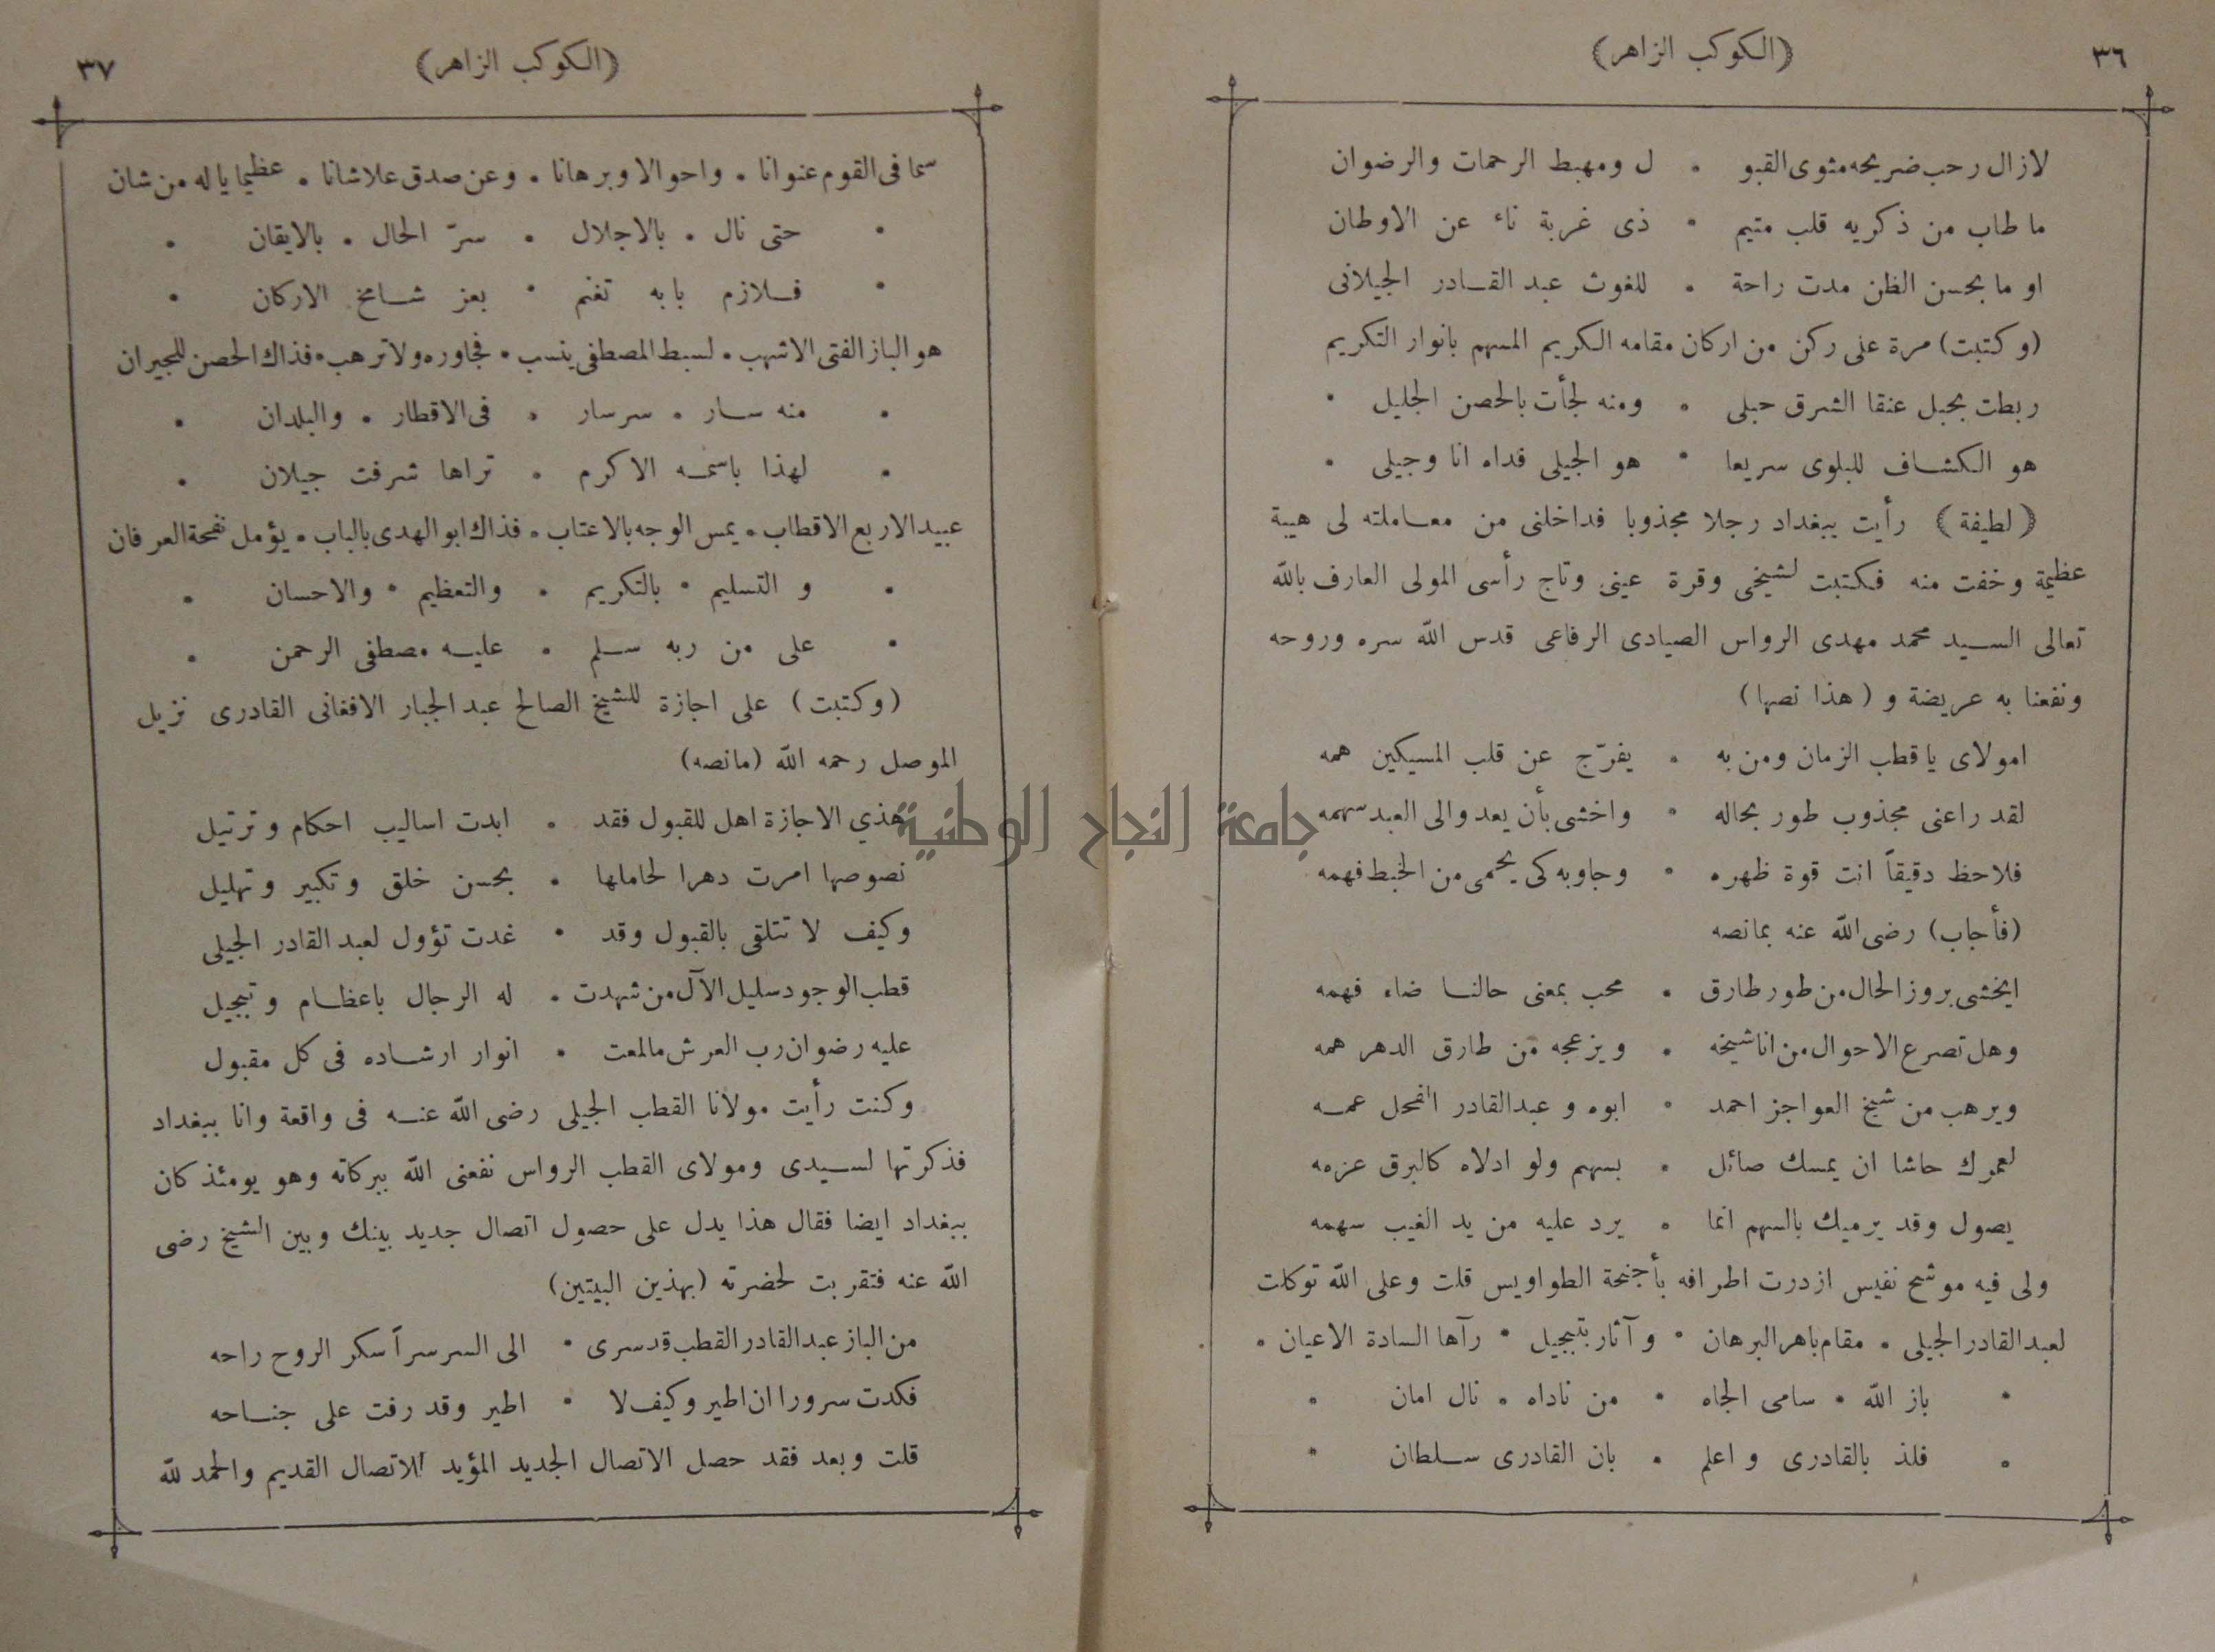 ٣٦
﴿الكوكب الزاهر﴾
لازال رحب ضريحه مثوى القبو • ل ومهبط الرحمات والرضوان
ما طاب من ذكريه قلب متيم • ذى غربة ناء عن الاوطان
او ما بحسن الظن مدت راحة • للغوث عبد القادر الجيلانى
(وكتبت) مرة على ركن من اركان مقامه الكريم المسهم بانوار التكريم
ربطت بحبل عنقا الشرق حبلى • ومنه لجأت بالحصن الجليل •
هو الكشاف للبلوى سريعا • هو الجيلى فداه انا وجيلى •
﴿لطيفة﴾ رأيت ببغداد رجلا مجذوبا فداخلنى من معاملته لى هيبة
عظيمة وخفت منه فكتبت لشيخى وقرة عينى وتاج رأسى المولى العارف بالله
تعالى السيد محمد مهدى الرواس الصيادى الرفاعى قدس الله سره وروحه
ونفعنا به عريضة و (هذا نصها)
امولاى يا قطب الزمان ومن به • يفرّج عن قلب المسيكين همه
لقد راعنى مجذوب طور بحاله • واخشى بأن يعد والى العبد سهمه
فلاحظ دقيقاً انت قوة ظهره • وجاوبه كى يحمى من الخبط فهمه
(فأجاب) رضى الله عنه بمانصه
ايخشى بروز الحال من طور طارق • محب بمعنى حالنا ضاء فهمه
وهل تصرع الاحوال من انا شيخه • ويزعجه من طارق الدهر همه
ويرهب من شيخ العواجز احمد • ابوه وعبد القادر الفحل عمه
لعمرك حاشا ان يمسك صائل • بسهم ولو ادلاه كالبرق عزمه
يصول وقد يرميك بالسهم انما • يرد عليه من يد الغيب سهمه
ولى فيه موشح نفيس ازدرت اطرافه بأجنحة الطواويس قلت وعلى الله توكلت
لعبد القادر الجيلى • مقام باهر البرهان • وآثار بتبجيل • رآها السادة الاعيان •
• باز الله • سامى الجاه • من ناداه • نال امان •
• فلذ بالقادرى واعلم • بان القادرى سلطان •
٣٧
﴿الكوكب الزاهر﴾
سما فى القوم عنوانا • واحوالا وبرهانا • وعن صدق علا شانا • عظيما ياله من شان
• حتى نال • بالاجلال • سرّ الحال • بالايقان •
• فلازم بابه تغنم • بعز شامخ الاركان •
هو الباز الفتى الاشهب • لسبط المصطفى ينسب • فجاوره ولا ترهب • فذاك الحصن للجيران
• منه سار • سر سار • فى الاقطار • والبلدان •
• لهذا باسمه الاكرم • تراها شرفت جيلان •
عبيد الاربع الاقطاب • يمس الوجه بالاعتاب • فذاك ابو الهدى بالباب • يؤمل نفحة العرفان
• والتسليم • بالتكريم • والتعظيم • والاحسان •
• على من ربه سلم • عليه مصطفى الرحمن •
(وكتبت) على اجازة للشيخ الصالح عبد الجبار الافغانى القادرى نزيل
الموصل رحمه الله (مانصه)
هذي الاجازة اهل للقبول فقد • ابدت اساليب احكام وترتيل
نصوصها امرت دهرا لحاملها • بحسن خلق وتكبير وتهليل
وكيف لا تتلقى بالقبول وقد • غدت تؤول لعبد القادر الجيلى
قطب الوجود سليل الآل من شهدت • له الرجال باعظام وتبجيل
عليه رضوان رب العرش مالمعت • انوار ارشاده فى كل مقبول
وكنت رأيت مولانا القطب الجيلى رضى الله عنه فى واقعة وانا ببغداد
فذكرتها لسيدى ومولاى القطب الرواس نفعنى الله ببركاته وهو يومئذ كان
ببغداد ايضا فقال هذا يدل على حصول اتصال جديد بينك وبين الشيخ رضى
الله عنه فتقربت لحضرته (بهذين البيتين)
من الباز عبد القادر القطب قد سرى • الى السر سراً سكر الروح راحه
فكدت سرورا ان اطير وكيف لا • اطير وقد رفت على جناحه
قلت وبعد فقد حصل الاتصال الجديد المؤيد للاتصال القديم والحمد لله
جامعة النجاح الوطنية